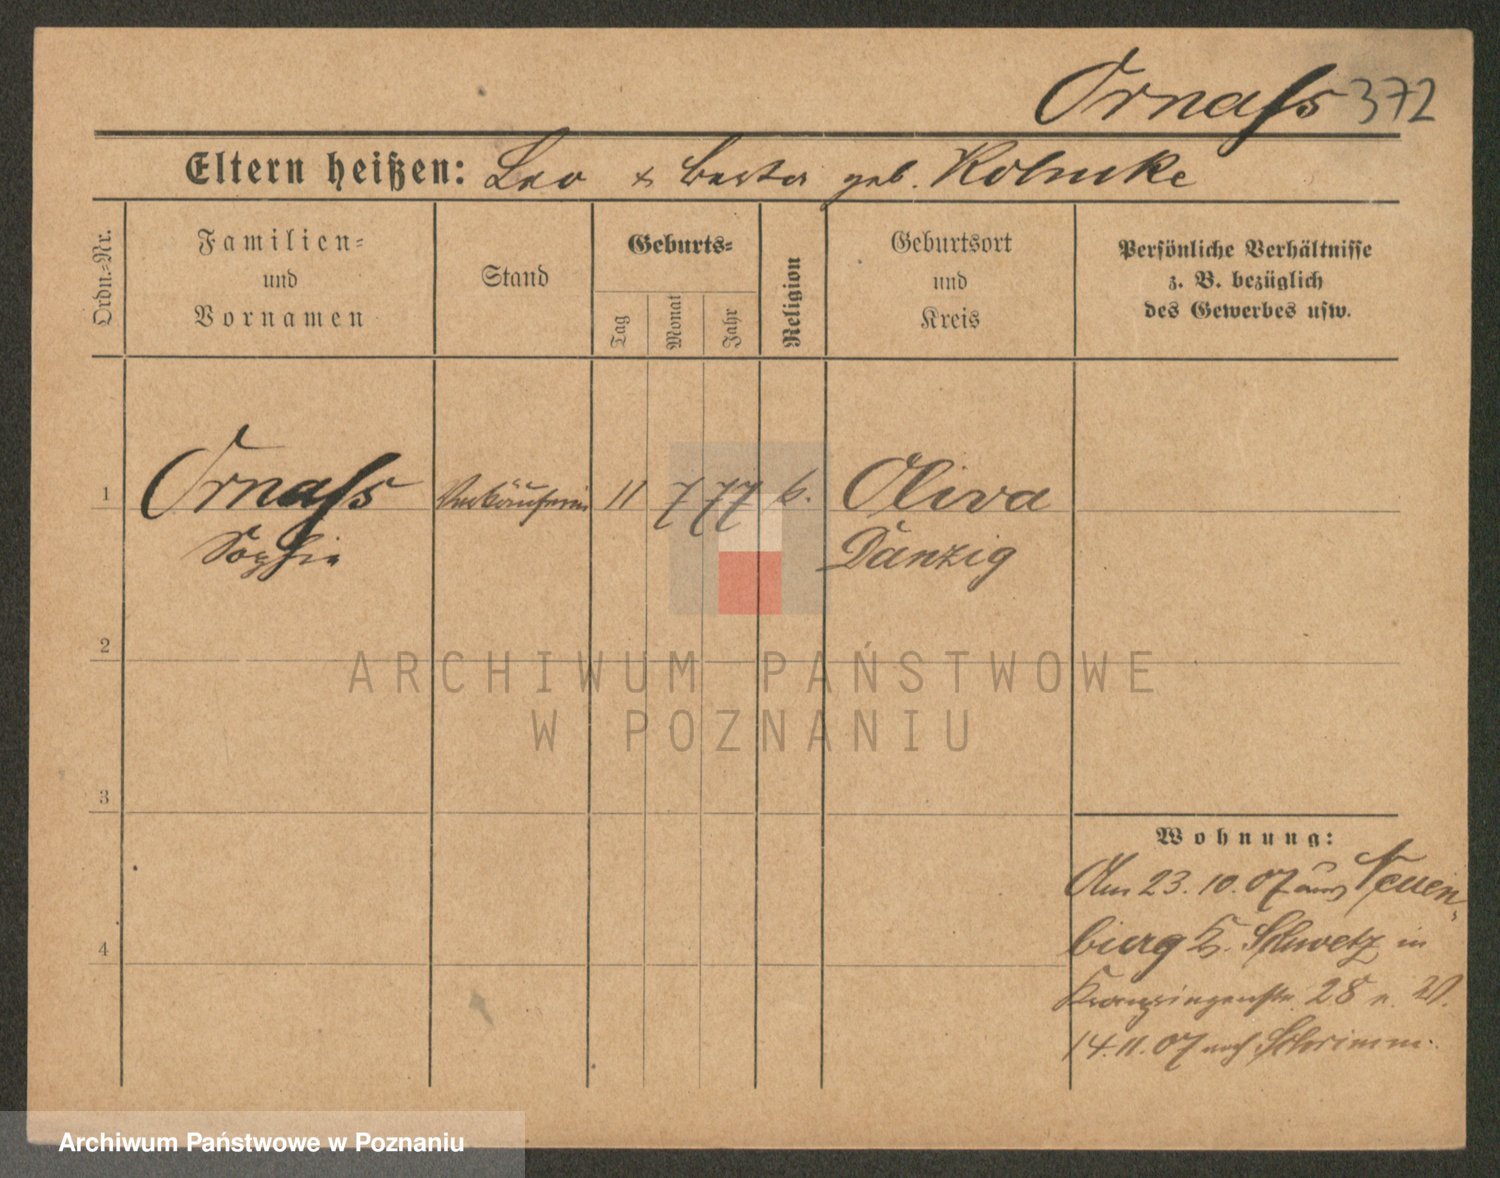 Ornass 372
Eltern heißen: Leo & Berta geb. Kolmcke
Ordn.-Nr.
Familien-
und
Vornamen
Stand
Geburts-
Tag
Monat
Jahr
Religion
Geburtsort
und
Kreis
Persönliche Verhältnisse
z. B. bezüglich
des Gewerbes usw.
1 Ornass Verkäuferin 11 7 77 k. Oliva
Sophie Danzig
2
ARCHIWUM PAŃSTWOWE
W POZNANIU
3
Wohnung:
Am 23.10.07 aus Neuen-
4 burg K. Schwetz in
Kronprinzenstr. 28 n. W.
14.11.07 nach Schrimm.
Archiwum Państwowe w Poznaniu